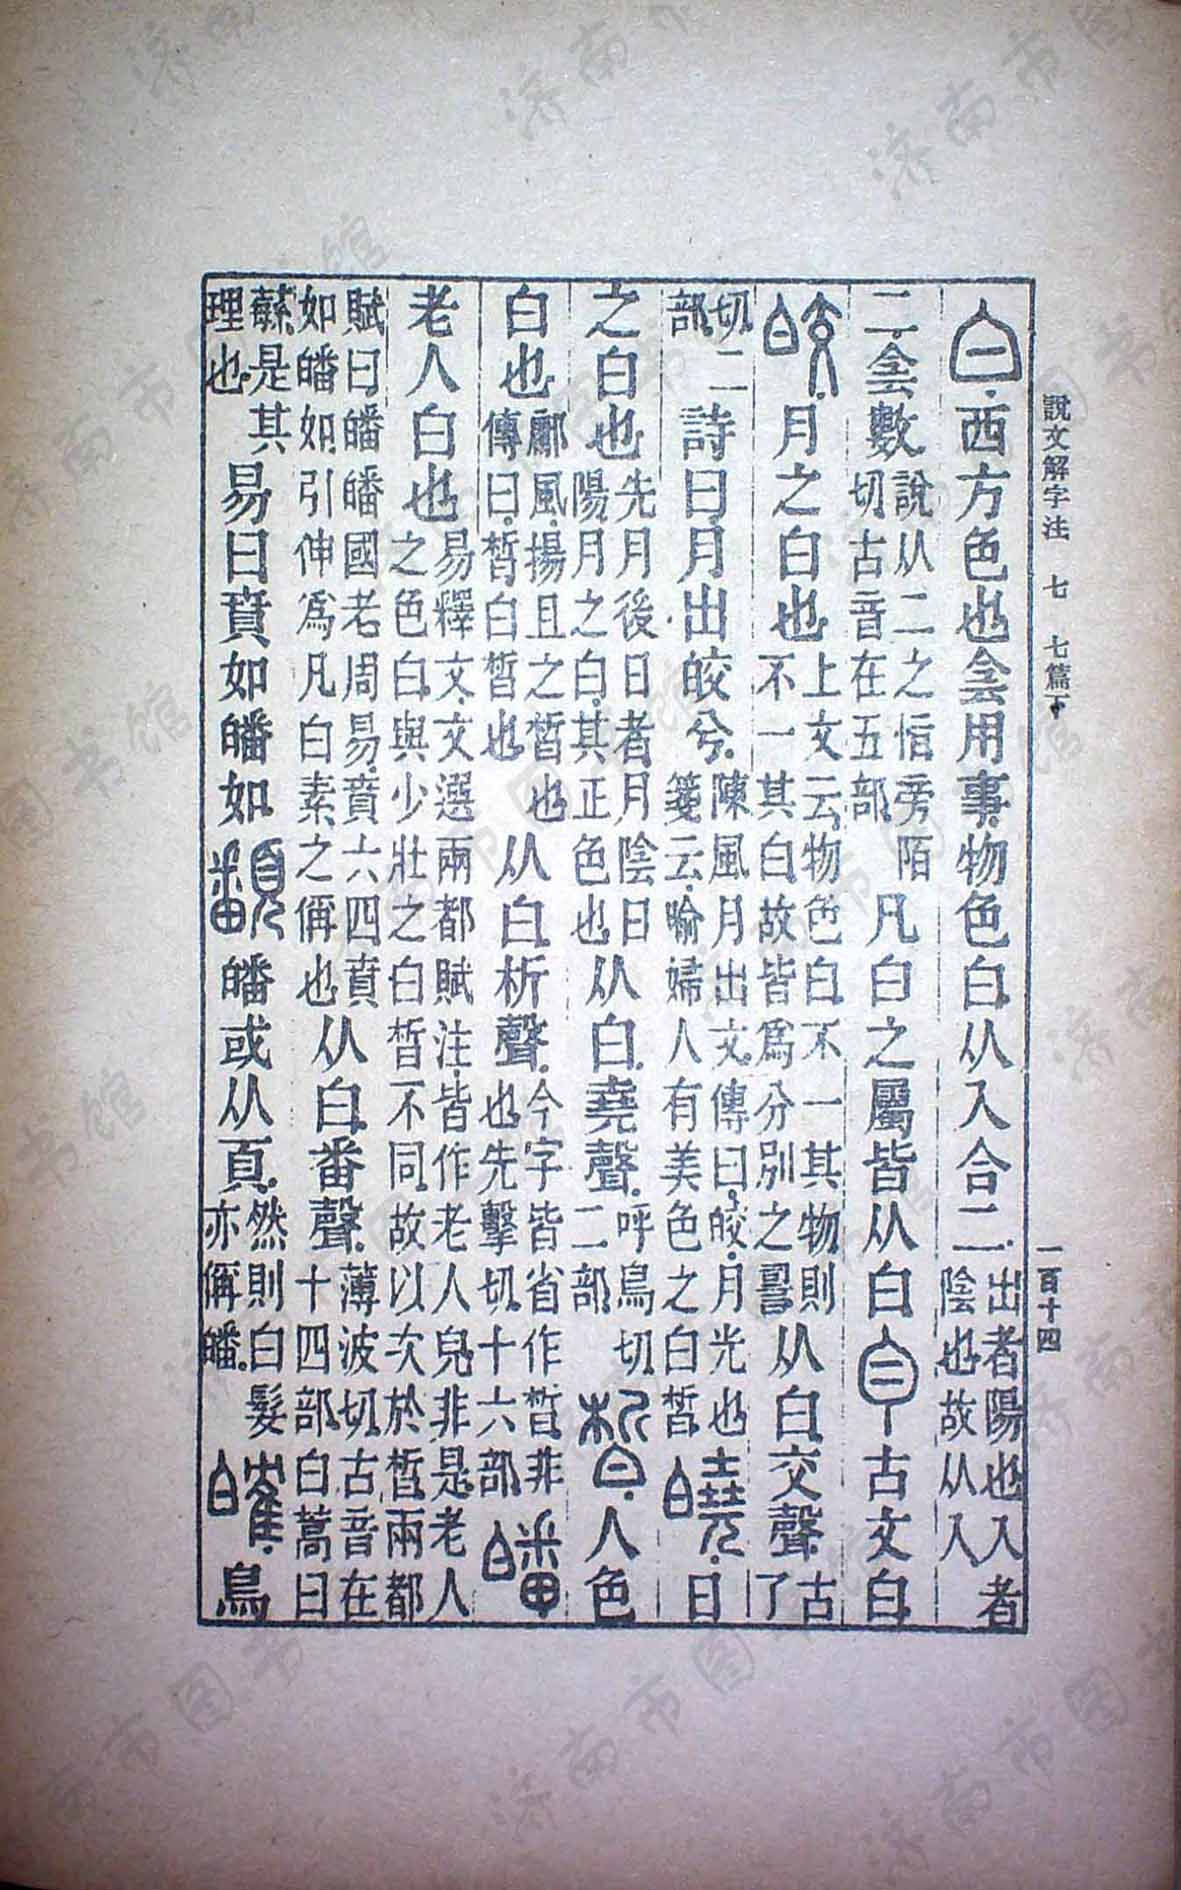 說文解字注 七 七篇下 一百十四
白西方色也侌用事物色白从入合二出者陽也入者陰也故从入
二侌數說从二之恉旁陌切古音在五部凡白之屬皆从白𦣺古文白
皎月之白也上文云物色白不一其物則不一其白故皆爲分別之䛐从白交聲古了
切二部詩曰月出皎兮陳風月出文傳曰皎月光也箋云喻婦人有美色之白皙曉日
之白也先月後日者月陰日陽月之白其正色也从白堯聲呼鳥切二部皙人色
白也鄘風揚且之皙也傳曰皙白皙也从白析聲今字皆省作晳非也先擊切十六部皤
老人白也易釋文文選兩都賦注皆作老人皃非是老人之色白與少壯之白皙不同故以次於皙兩都
賦曰皤皤國老周易賁六四賁如皤如引伸爲凡白素之偁也从白番聲薄波切古音在十四部白蒿曰
蘩是其理也易曰賁如皤如𩕏皤或从頁然則白髮亦偁皤㿥鳥